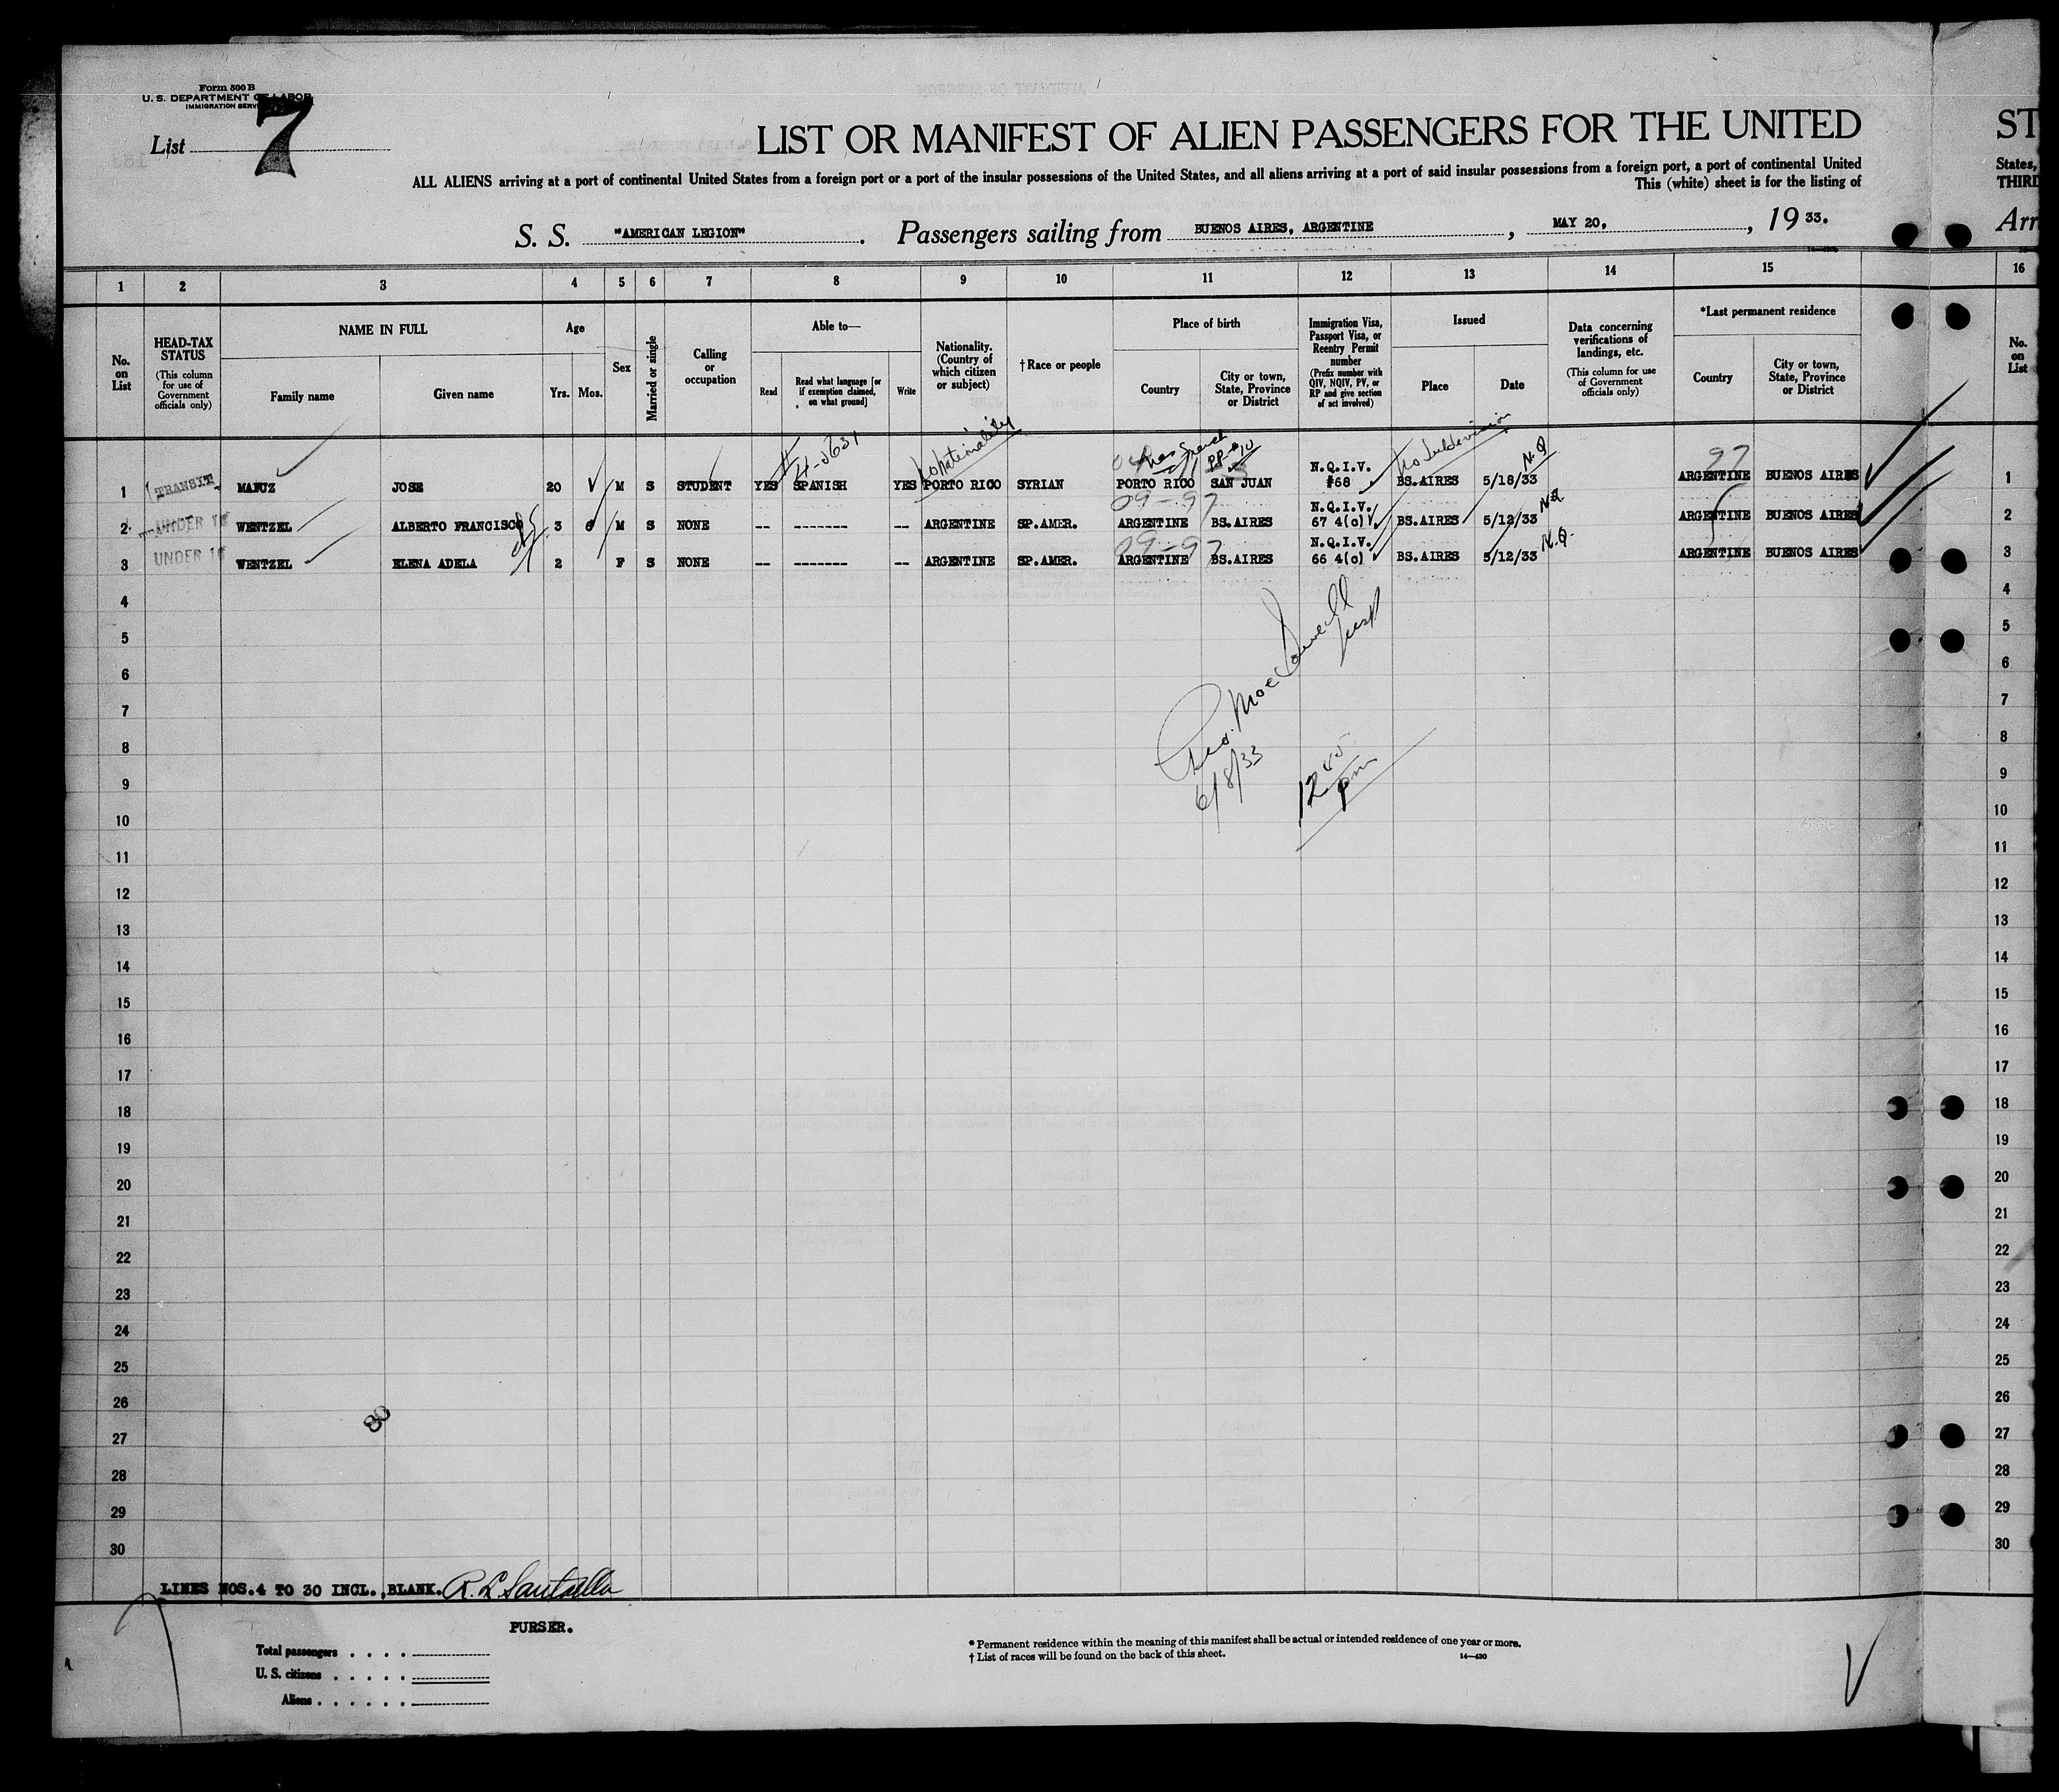 Form 500 B
U. S. DEPARTMENT OF LABOR
IMMIGRATION SERVICE
List 7
LIST OR MANIFEST OF ALIEN PASSENGERS FOR THE UNITED
ST
ALL ALIENS arriving at a port of continental United States from a foreign port or a port of the insular possessions of the United States, and all aliens arriving at a port of said insular possessions from a foreign port, a port of continental United
States,
This (white) sheet is for the listing of
THIRD
S. S. "AMERICAN LEGION". Passengers sailing from BUENOS AIRES, ARGENTINE, MAY 20, , 19 33.
Arr
1 2 3 4 5 6 7 8 9 10 11 12 13 14 15 16
No. on List
HEAD-TAX STATUS (This column for use of Government officials only)
NAME IN FULL
Family name
Given name
Age
Yrs. Mos.
Sex
Married or single
Calling or occupation
Able to—
Read
Read what language [or if exemption claimed, on what ground]
Write
Nationality. (Country of which citizen or subject)
† Race or people
Place of birth
Country
City or town, State, Province or District
Immigration Visa, Passport Visa, or Reentry Permit number (Prefix number with QIV, NQIV, PV, or RP and give section of act involved)
Issued
Place
Date
Data concerning verifications of landings, etc. (This column for use of Government officials only)
*Last permanent residence
Country
City or town, State, Province or District
No. on List
No Nationality
PP-#10
No Subdivision
N.Q
97
1 TRANSIT MANUZ JOSE 20 M S STUDENT YES SPANISH YES PORTO RICO SYRIAN PORTO RICO SAN JUAN N.Q.I.V. #68 BS.AIRES 5/18/33 ARGENTINE BUENOS AIRES 1
09-97
2 UNDER 16 WENTZEL ALBERTO FRANCISCO 3 6 M S NONE -- ------- -- ARGENTINE SP.AMER. ARGENTINE BS.AIRES N.Q.I.V. 67 4(c) BS.AIRES 5/12/33 N.Q. ARGENTINE BUENOS AIRES 2
09-97
3 UNDER 16 WENTZEL ELENA ADELA 2 F S NONE -- ------- -- ARGENTINE SP.AMER. ARGENTINE BS.AIRES N.Q.I.V. 66 4(c) BS.AIRES 5/12/33 N.Q. ARGENTINE BUENOS AIRES 3
4 4
5 5
6 6
7 7
8 8
9 9
6/8/33
12 45 pm
10 10
11 11
12 12
13 13
14 14
15 15
16 16
17 17
18 18
19 19
20 20
21 21
22 22
23 23
24 24
25 25
26 26
80
27 27
28 28
29 29
30 30
LINES NOS.4 TO 30 INCL.,BLANK.
PURSER.
Total passengers
U. S. citizens
Aliens
* Permanent residence within the meaning of this manifest shall be actual or intended residence of one year or more.
† List of races will be found on the back of this sheet.
14—430